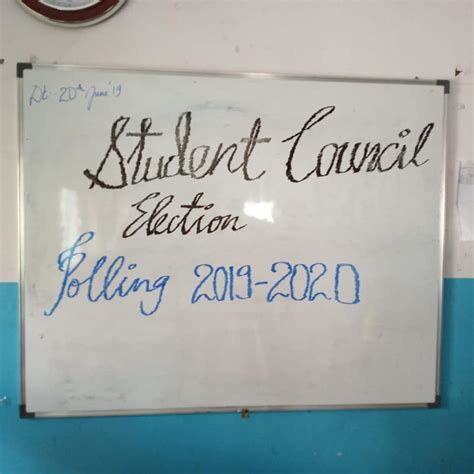 Dt:- 20th June'19
Student Council
Election
Polling 2019-2020